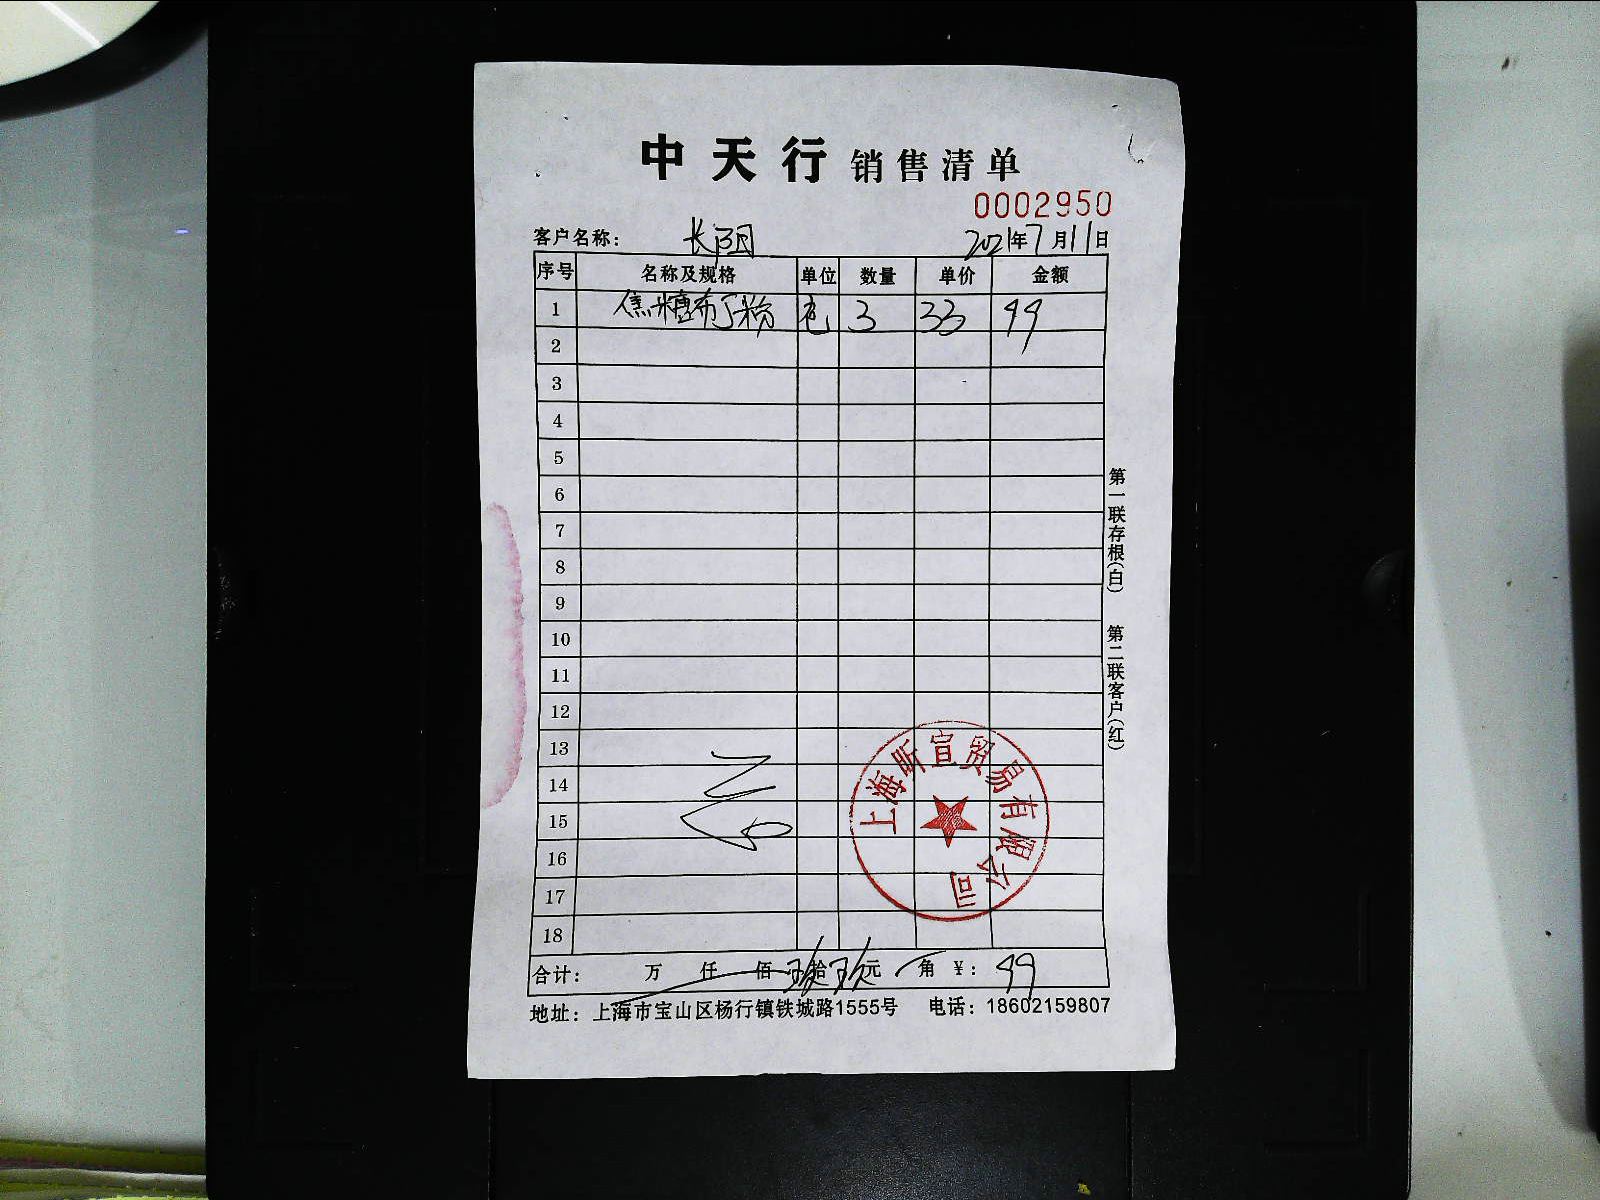 中天行 销售清单
0002950
客户名称： 长阳 2021年7月11日
序号 名称及规格 单位 数量 单价 金额
1 焦糖布丁粉 包 3 33 99
2
3
4
5
6
7
8
9
10
11
12
13
14
15
16
17
18
上海昕宣贸易有限公司
合计： 万 仟 佰 玖拾玖元 角 ￥： 99
地址：上海市宝山区杨行镇铁城路1555号 电话：18602159807
第一联存根(白) 第二联客户(红)